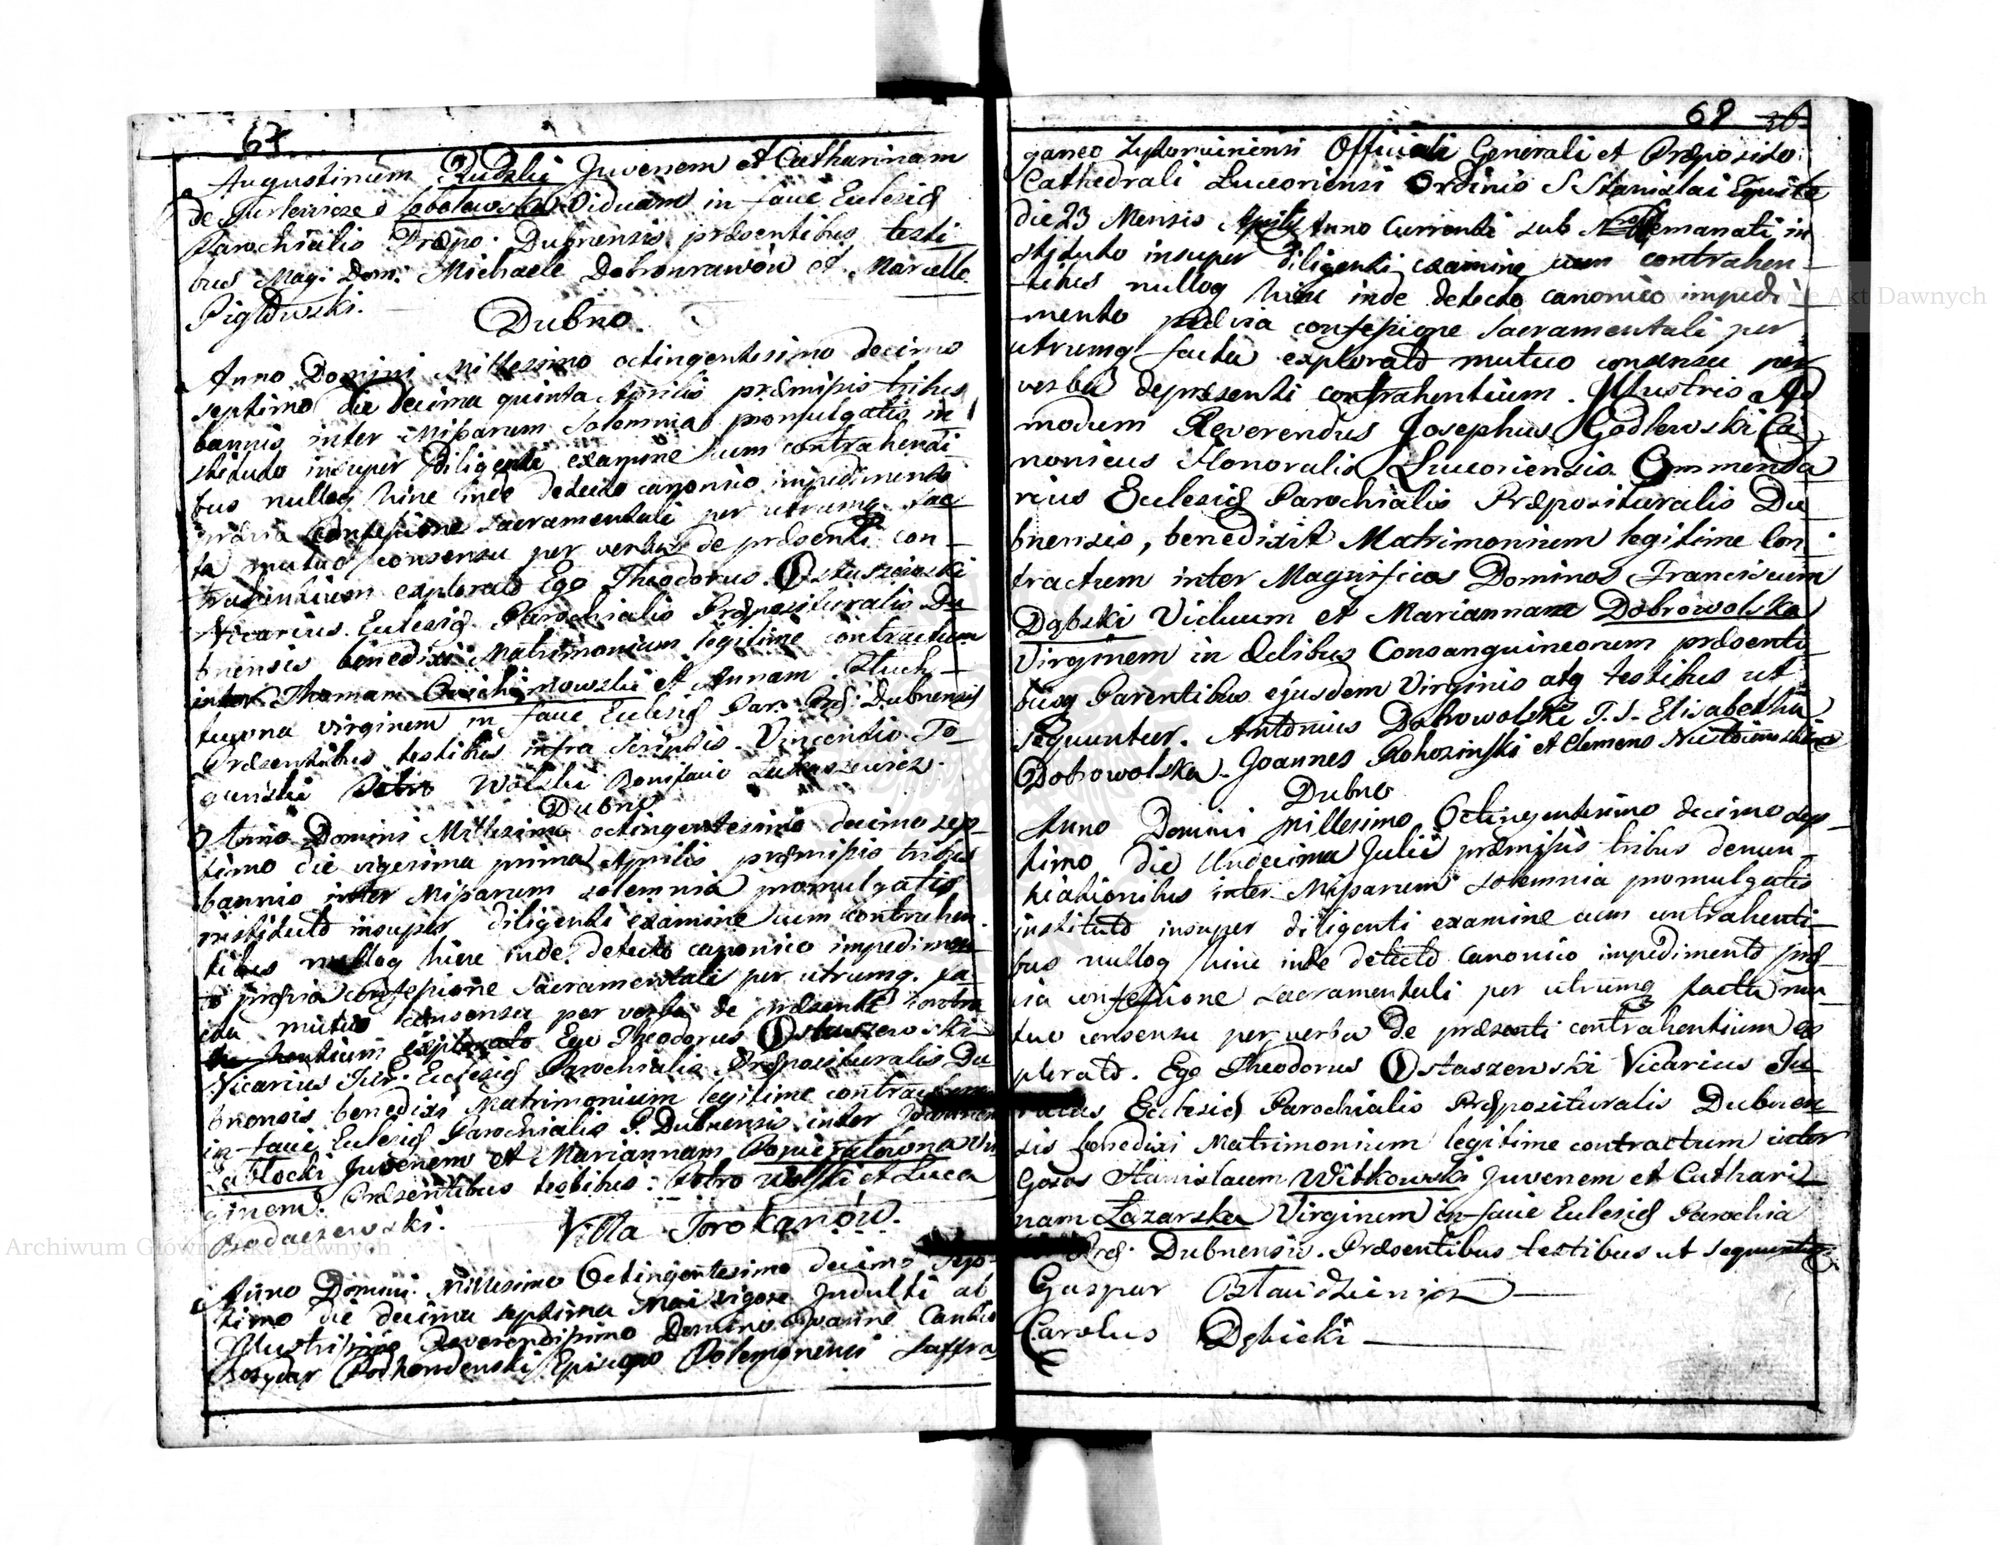 67
Augustinum Rudzki Juvenem et Catharinam
de Jurkiewicze Sobolewska Viduam in facie Eclesię
Parochialis Prępo. Dubnensis pręsentibus testi
bus Mag: Dom: Michaele Dobronrawow et Marcelle
Piglowski.
Dubno.
Anno Domini Millesimo octingentesimo decimo
septimo die decima quinta Aprilis pręmissis tribus
bannis inter Missarum Solemnia promulgatis in
stituto insuper diligenti examine cum contrahenti
bus nulloq hinc inde detecto canonico impedimento
prævia confessione sacramentali per utrumq. fac
ta mutuo consensu per verba de præsenti con
trahentium explorato Ego Theodorus Ostaszewski
Vicarius Eclesię Parochialis Pręposituralis Du
bnensis benedixi Matrimonium legitime contractum
inter Thomam et Annam
virginem in facie Eclesię Par. Prę: Dubnensis
Præsentibus testibus infra scriptis. Vincentio To
Petro Wolski Bonifacio Lukaszewicz.
Dubno
Anno Domini Millesimo octingentesimo decimo sep
timo die vigesima prima Aprilis pręmissis tribus
bannis inter Missarum solemnia promulgatis
instituto insuper diligenti examine cum contrahen
tibus nulloq hinc inde detecto canonico impedimen
to prævia confessione Sacramentali per utrumq. fa
cta mutuo consensu per verba de præsenti contra
hentium explorato Ego Theodorus Ostaszewski
Vicarius Jur: Eclesię Parochialis Pręposituralis Du
bnensis benedixi Matrimonium legitime contractum
in facie Eclesię Parochialis P. Dubnensis inter Joannem
Juvenem et Mariannam Popieratowna Vir
ginem. Præsentibus testibus: Petro Wolski et Luca
Bodaczewski.
Villa Torokanów.
Anno Domini Millesimo Octingentesimo decimo sep
timo die decima septima Mai vigore Indulti ab
Illustrissimo Reverendissimo Domino Joanne Cantio
Bozydar Podhorodenski Episcopo Polemonensi Suffra
68 36
ganeo Zytomiriensi Officiali Generali et Præposito
Cathedrali Luceoriensi Ordinis S Stanislai Equite
die 23 Mensis Aprilis Anno Currenti sub N emanati in
stituto insuper diligenti examine cum contrahen
tibus nulloq hinc inde detecto canonico impedi
mento prævia confessione sacramentali per
utrumq facta explorato mutuo consensu per
verba depræsenti contrahentium. Illustris Ad
modum Reverendus Josephus Godlewski Ca
nonicus Honoralis Luceoriensis Commenda
rius Eclesię Parochialis Præposituralis Du
bnensis, benedixit Matrimonium legitime Con
tractum inter Magnificos Dominos Franciscum
Dąbski Viduum et Mariannam Dobrowolska
Virginem in Ædibus Consanguineorum præsenti
busq Parentibus ejusdem Virginis atq testibus ut
sequuntur. Antonius Dobrowolski T. S. Elisabetha
Dobrowolska. Joannes Rohozinski et Clemens
Dubno
Anno Domini Millesimo Octingentesimo decimo sep
timo die Undecima Julii præmissis tribus denun
tiationibus inter Missarum solemnia promulgatis
instituto insuper diligenti examine cum contrahenti
bus nulloq hinc inde detecto canonico impedimento præ
via confessione sacramentali per utrumq facta mu
tuo consensu per verba de præsenti contrahentium ex
plorato. Ego Theodorus Ostaszewski Vicarius Ju
ratus Ecclesię Parochialis Pręposituralis Dubnen
sis benedixi Matrimonium legitime contractum inter
Gosos Stanislaum Witkowski Juvenem et Cathari
nam Lazarska Virginem in facie Eclesię Parochia
Prę: Dubnensis. Præsentibus testibus ut sequuntur
Gaspar
Carolus Dębicki
Archiwum Główne Akt Dawnych
Archiwum Główne Akt Dawnych